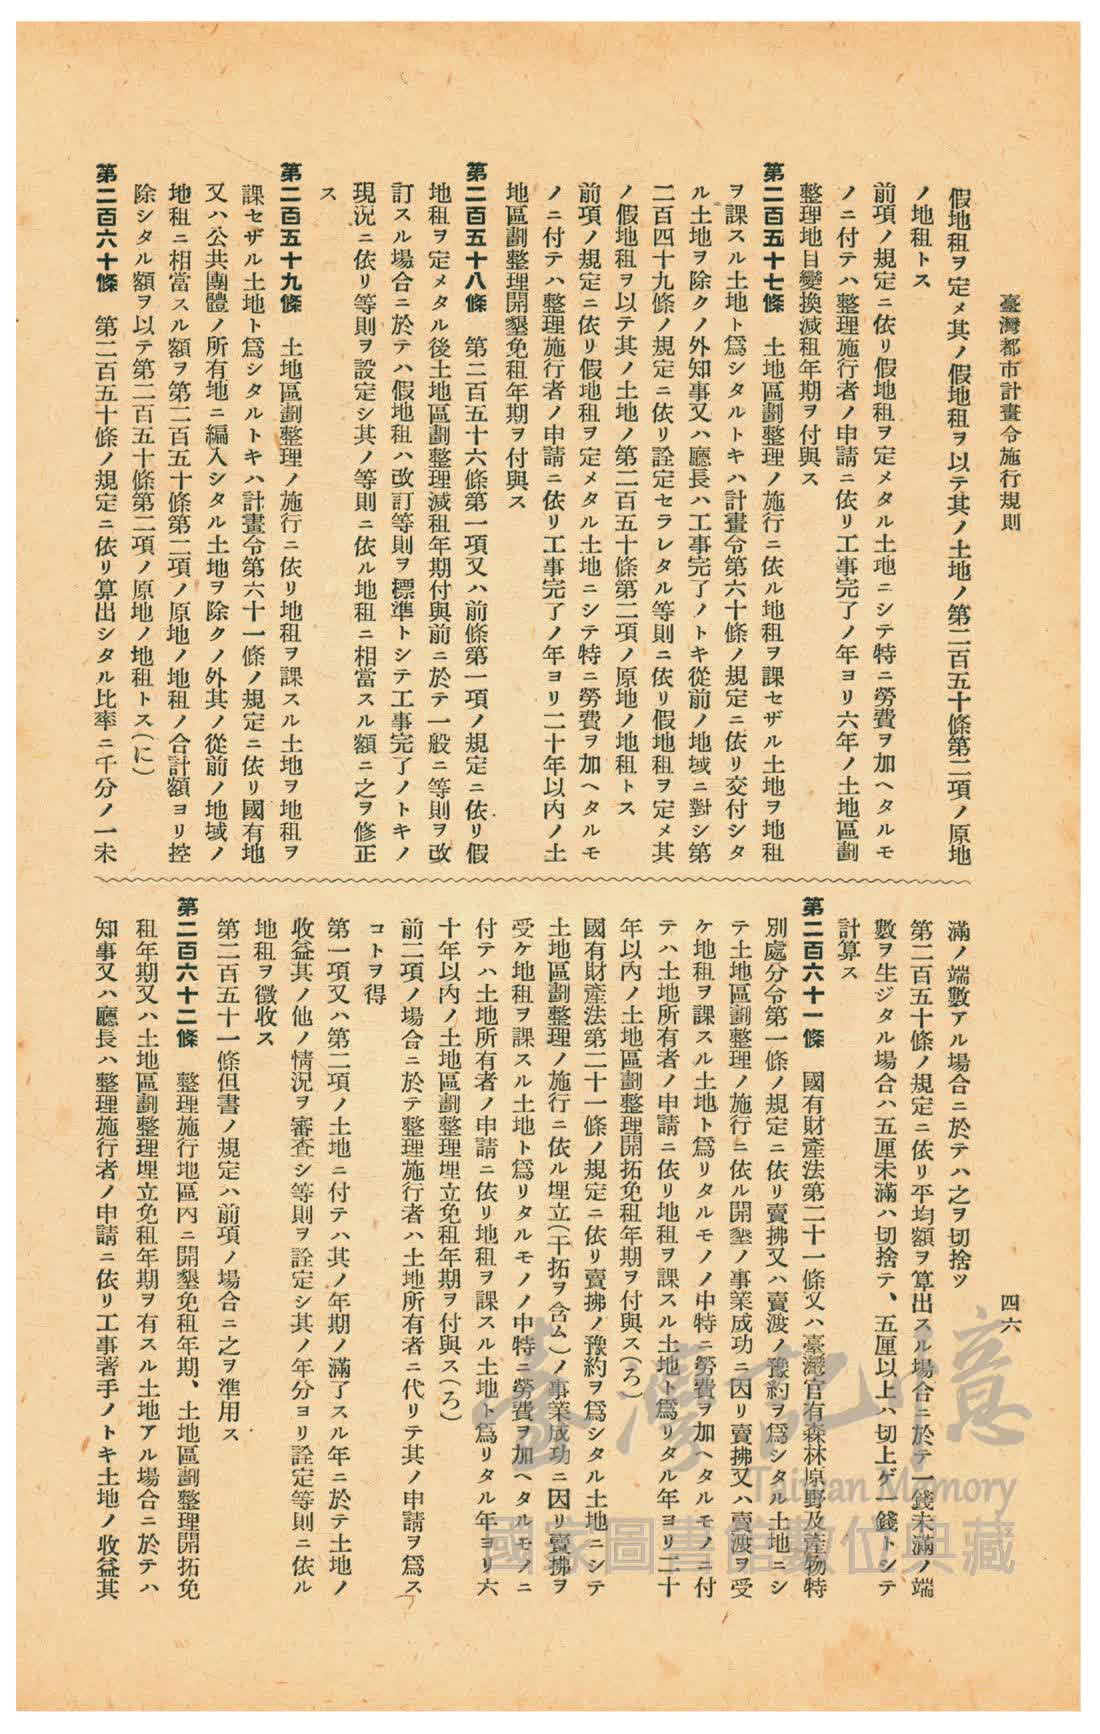 臺灣都市計畫令施行規則
四六
假地租ヲ定メ其ノ假地租ヲ以テ其ノ土地ノ第二百五十條第二項ノ原地
ノ地租トス
前項ノ規定ニ依リ假地租ヲ定メタル土地ニシテ特ニ勞費ヲ加ヘタルモ
ノニ付テハ整理施行者ノ申請ニ依リ工事完了ノ年ヨリ六年ノ土地區劃
整理地目變換減租年期ヲ付與ス
第二百五十七條 土地區劃整理ノ施行ニ依ル地租ヲ課セザル土地ヲ地租
ヲ課スル土地ト爲シタルトキハ計畫令第六十條ノ規定ニ依リ交付シタ
ル土地ヲ除クノ外知事又ハ廳長ハ工事完了ノトキ從前ノ地域ニ對シ第
二百四十九條ノ規定ニ依リ詮定セラレタル等則ニ依リ假地租ヲ定メ其
ノ假地租ヲ以テ其ノ土地ノ第二百五十條第二項ノ原地ノ地租トス
前項ノ規定ニ依リ假地租ヲ定メタル土地ニシテ特ニ勞費ヲ加ヘタルモ
ノニ付テハ整理施行者ノ申請ニ依リ工事完了ノ年ヨリ二十年以內ノ土
地區劃整理開墾免租年期ヲ付與ス
第二百五十八條 第二百五十六條第一項又ハ前條第一項ノ規定ニ依リ假
地租ヲ定メタル後土地區劃整理減租年期付與前ニ於テ一般ニ等則ヲ改
訂スル場合ニ於テハ假地租ハ改訂等則ヲ標準トシテ工事完了ノトキノ
現況ニ依リ等則ヲ設定シ其ノ等則ニ依ル地租ニ相當スル額ニ之ヲ修正
ス
第二百五十九條 土地區劃整理ノ施行ニ依リ地租ヲ課スル土地ヲ地租ヲ
課セザル土地ト爲シタルトキハ計畫令第六十一條ノ規定ニ依リ國有地
又ハ公共團體ノ所有地ニ編入シタル土地ヲ除クノ外其ノ從前ノ地域ノ
地租ニ相當スル額ヲ第二百五十條第二項ノ原地ノ地租ノ合計額ヨリ控
除シタル額ヲ以テ第二百五十條第二項ノ原地ノ地租トス(に)
第二百六十條 第二百五十條ノ規定ニ依リ算出シタル比率ニ千分ノ一未
滿ノ端數アル場合ニ於テハ之ヲ切捨ツ
第二百五十條ノ規定ニ依リ平均額ヲ算出スル場合ニ於テ一錢未滿ノ端
數ヲ生ジタル場合ハ五厘未滿ハ切捨テ、五厘以上ハ切上ゲ一錢トシテ
計算ス
第二百六十一條 國有財產法第二十一條又ハ臺灣官有森林原野及產物特
別處分令第一條ノ規定ニ依リ賣拂又ハ賣渡ノ豫約ヲ爲シタル土地ニシ
テ土地區劃整理ノ施行ニ依ル開墾ノ事業成功ニ因リ賣拂又ハ賣渡ヲ受
ケ地租ヲ課スル土地ト爲リタルモノノ中特ニ勞費ヲ加ヘタルモノニ付
テハ土地所有者ノ申請ニ依リ地租ヲ課スル土地ト爲リタル年ヨリ二十
年以內ノ土地區劃整理開拓免租年期ヲ付與ス(ろ)
國有財產法第二十一條ノ規定ニ依リ賣拂ノ豫約ヲ爲シタル土地ニシテ
土地區劃整理ノ施行ニ依ル埋立(干拓ヲ含ム)ノ事業成功ニ因リ賣拂ヲ
受ケ地租ヲ課スル土地ト爲リタルモノノ中特ニ勞費ヲ加ヘタルモノニ
付テハ土地所有者ノ申請ニ依リ地租ヲ課スル土地ト爲リタル年ヨリ六
十年以內ノ土地區劃整理埋立免租年期ヲ付與ス(ろ)
前二項ノ場合ニ於テ整理施行者ハ土地所有者ニ代リテ其ノ申請ヲ爲ス
コトヲ得
第一項又ハ第二項ノ土地ニ付テハ其ノ年期ノ滿了スル年ニ於テ土地ノ
收益其ノ他ノ情況ヲ審查シ等則ヲ詮定シ其ノ年分ヨリ詮定等則ニ依ル
地租ヲ徵收ス
第二百五十一條但書ノ規定ハ前項ノ場合ニ之ヲ準用ス
第二百六十二條 整理施行地區內ニ開墾免租年期、土地區劃整理開拓免
租年期又ハ土地區劃整理埋立免租年期ヲ有スル土地アル場合ニ於テハ
知事又ハ廳長ハ整理施行者ノ申請ニ依リ工事著手ノトキ土地ノ收益其
臺灣記憶
Taiwan Memory
國家圖書館數位典藏